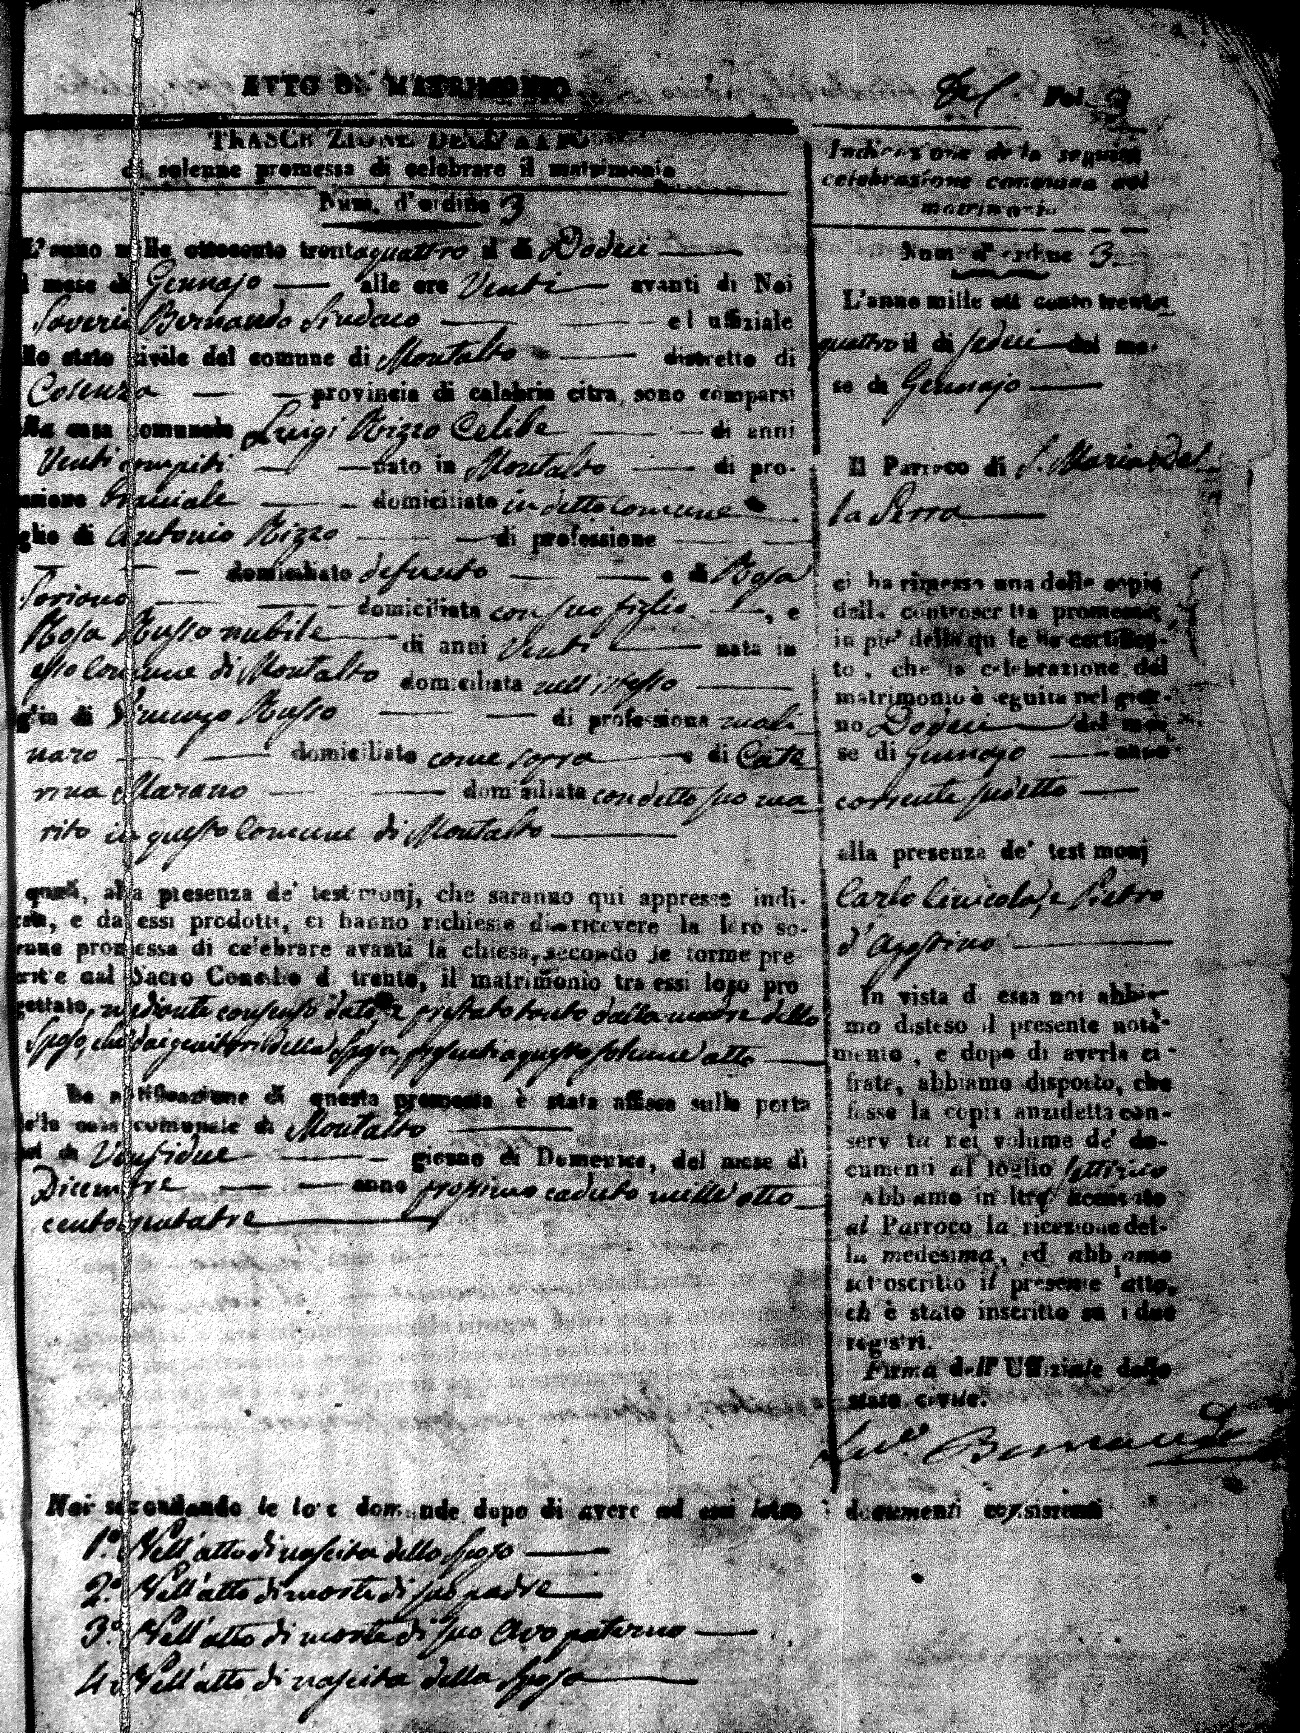 ATTO DI MATRIMONIO
Fol. 3
TRASCRIZIONE DELL'ATTO
di solenne promessa di celebrare il matrimonio
Num. d'ordine 3
L'anno mille ottocento trentaquattro il dì Dodeci
mese di Gennajo alle ore Venti avanti di Noi
Saverio Bernaudo Sindaco ed uffiziale
llo stato civile del comune di Montalto distretto di
Cosenza provincia di calabria citra, sono comparsi
lla casa comunale Luigi Rizzo Celibe di anni
Venti compiti nato in Montalto di pro-
essione bracciale domiciliato in detto comune
glio di Antonio Rizzo di professione
domiciliato defunto e di Rosa
Soriano domiciliata con suo figlio, e
Rosa Russo nubile di anni Venti nata in
esso Comune di Montalto domiciliata nell'istesso
glia di Vincenzo Russo di professione moli
naro domiciliato come sopra e di Cate
rina Marano domiciliata con detto suo ma
rito in questo Comune di Montalto
quali, alla presenza de' testimonj, che saranno qui appresso indi-
cati, e da essi prodotti, ci hanno richiesto di ricevere la loro so-
lenne promessa di celebrare avanti la chiesa, secondo le forme pre-
scritte dal Sacro Concilio di trento, il matrimonio tra essi loro pro
gettato, mediante consenso dato, e prestato tanto dalla madre dello
Sposo, che dai genitori della Sposa, presenti a questo solenne atto
La notificazione di questa promessa è stata affissa sulla porta
della casa comunale di Montalto
nel dì Ventidue giorno di Domenica, del mese di
Dicembre anno prossimo caduto mille otto
cento trentatre
Indicazione della seguita
celebrazione canonica del
matrimonio
Num d'ordine 3
L'anno mille ott cento trenta
quattro il dì sedeci del me-
se di Gennajo
Il Parroco di S. Maria del
la Serra
ci ha rimesso una delle copie
della controscritta promessa,
in piè della quale ha certifica-
to, che la celebrazione del
matrimonio è seguita nel gior-
no Dodeci del me-
se di Gennajo anno
corrente sudetto
alla presenza de' testimonj
Carlo Civicola, e Pietro
d'Agostino
In vista di essa noi abbia-
mo disteso il presente nota-
mento, e dopo di averla ci-
frata, abbiamo disposto, che
fosse la copia anzidetta con-
servata nel volume de' do-
cumenti al foglio
Abbiamo inoltre accusato
al Parroco la ricezione del-
la medesima, ed abbiamo
sottoscritto il presente atto,
ch' è stato inscritto su i due
registri.
Firma dell' Uffiziale dello
stato civile.
Sav.o Bernaudo
Noi secondando le loro domande dopo di avere ad essi letto i documenti consistenti
1.° Nell'atto di nascita dello Sposo
2.° Nell'atto di morte di suo padre
3.° Nell'atto di morte di suo Avo paterno
4.° Nell'atto di nascita della Sposa